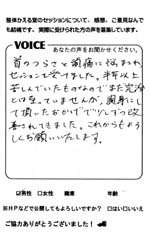 整体かえる堂のセッションについて、感想、ご意見なんで
も結構です。実際に受けられた方の声を募集しています。
VOICE
あなたの声をお聞かせください。
首のつらさと頭痛に悩まされ
セッションを受けました。半年以上
苦しんでいたものなのでまだ完治
とは至っていませんが、親身に
して頂いたおかげで少しずつ改
善されてきました。これからもよろ
しくお願いいたします。
男性 □女性 職業 年齢
※HPなどで公開してもよろしいですか？ □はい□いいえ
ご協力ありがとうございました！